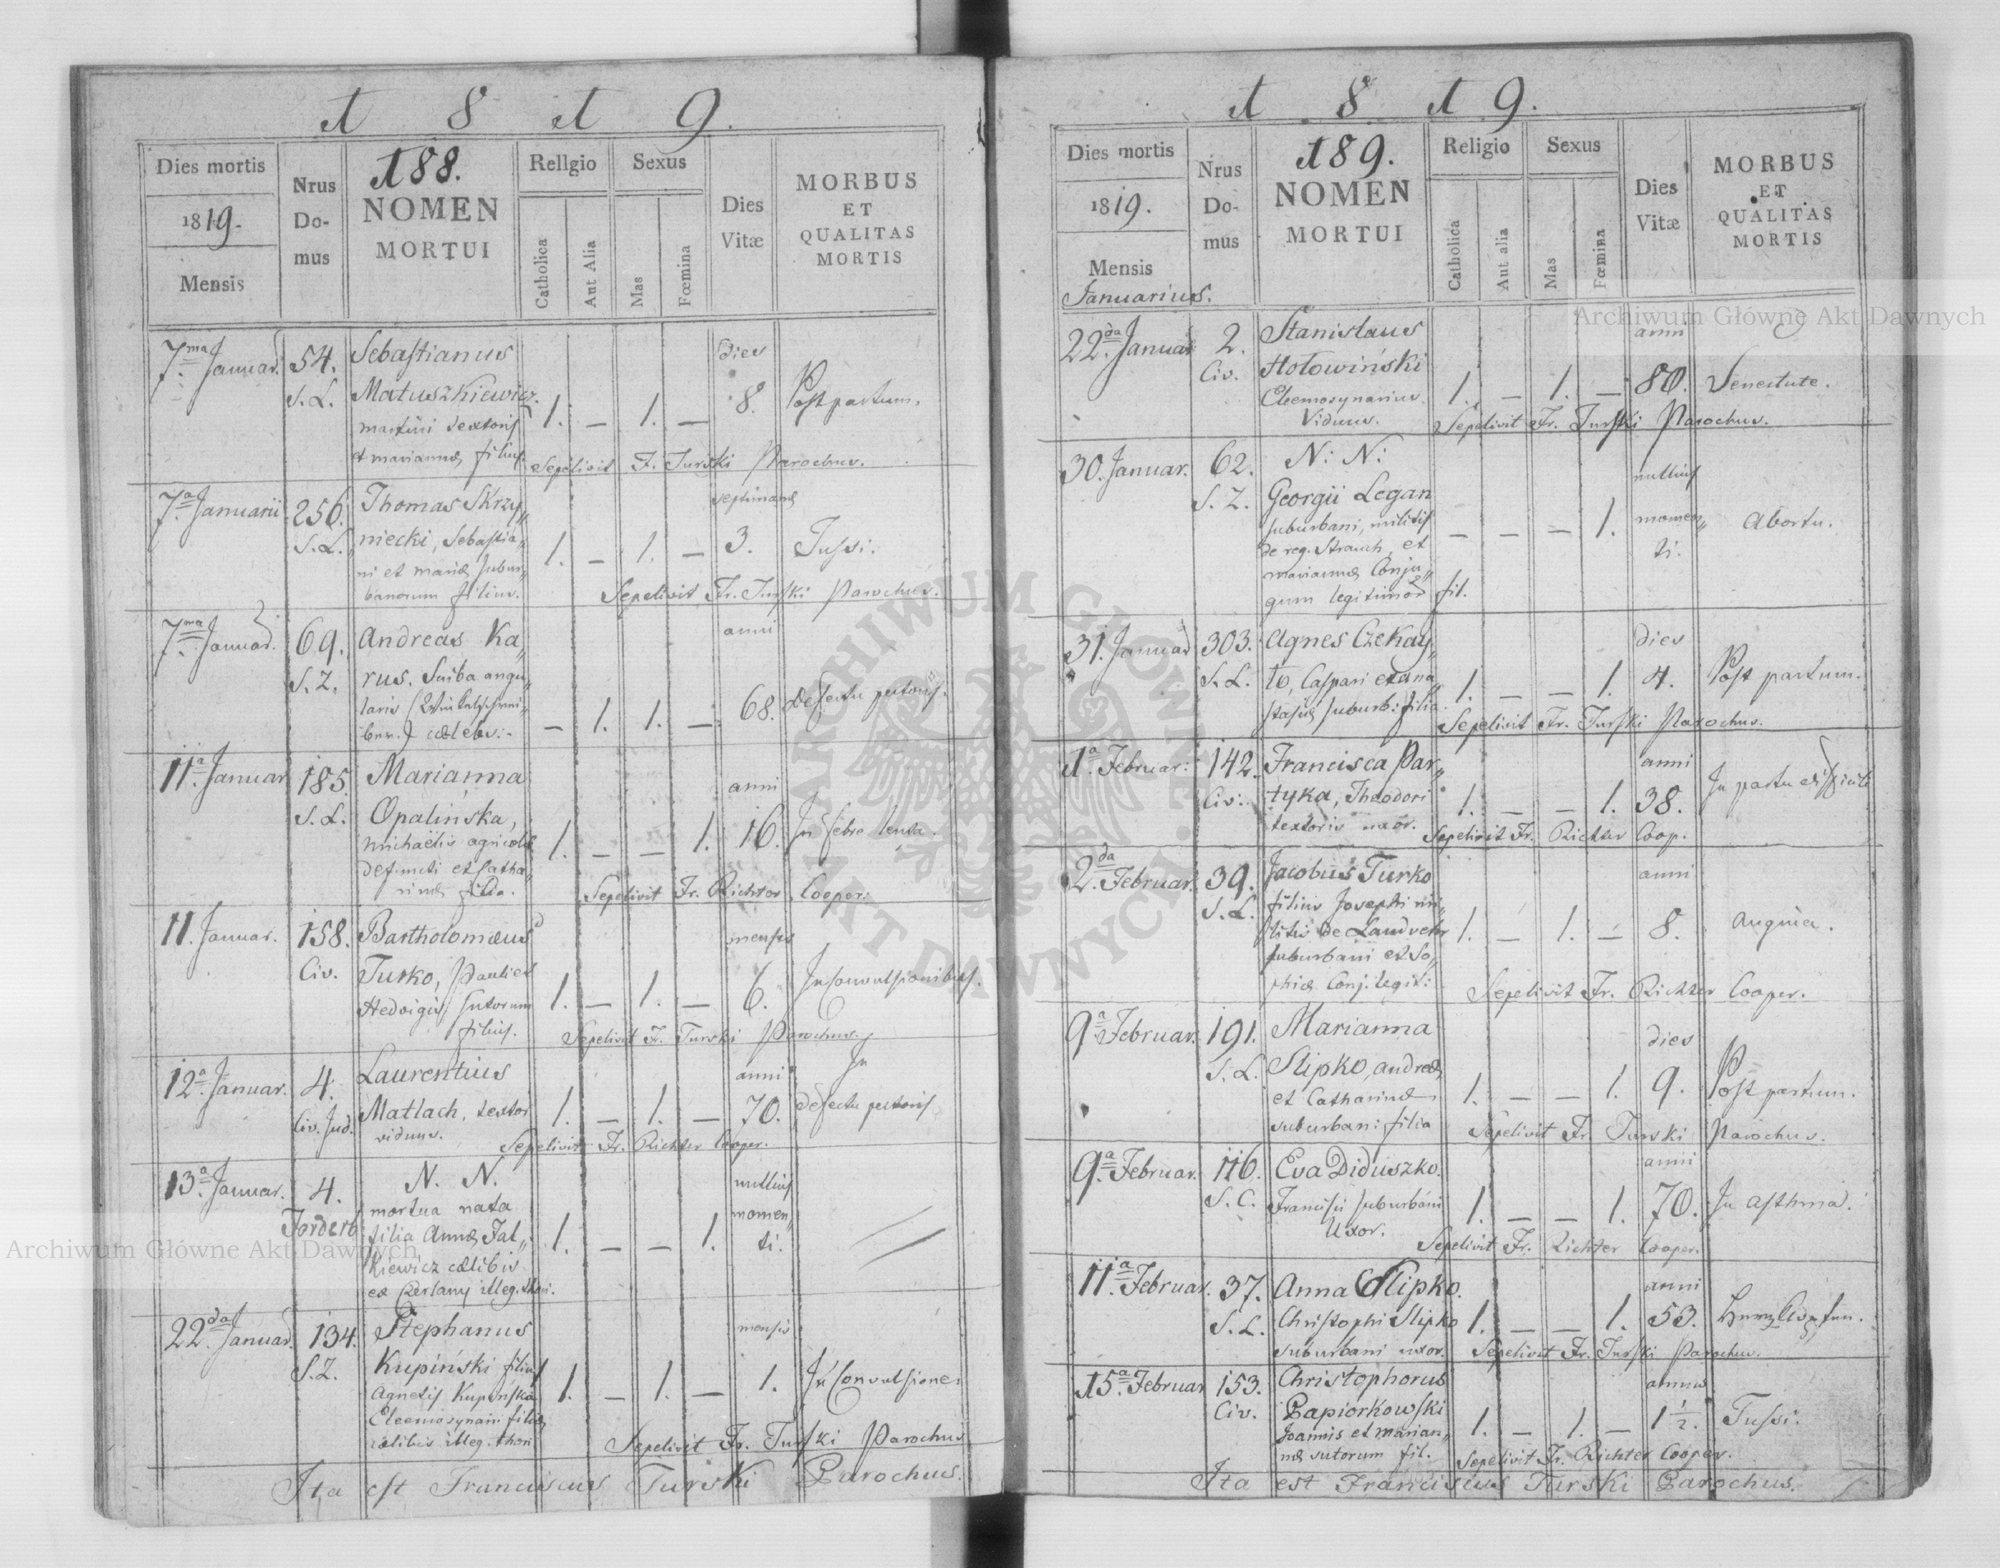 1 8 1 9.
Dies mortis
1819.
Mensis
Nrus
Do-
mus
188.
NOMEN
MORTUI
Religio
Catholica
Aut Alia
Sexus
Mas
Fœmina
Dies
Vitæ
MORBUS
ET
QUALITAS
MORTIS
7ma Januar. 54. Sebastianus dies
S. L. Matuszkiewicz. 1. — 1. — 8. Post partum.
Martini textoris
et Mariannæ filius. Sepelivit F. Turski Parochus.
7a Januarii 256. Thomas Skrzy„ septimanæ
S. L. niecki, Sebastia„ 1. — 1. — 3. Tussi.
ni et Mariæ subur„
banorum filius. Sepelivit Fr. Turski Parochus.
7ma Januar. 69. Andreas Ka„ anni
S. Z. rus. Scriba angu„
laris (Winkelschrei„ — 1. 1. — 68. defectu pectoris.
ber.) cælebs.
11a Januar 185. Marianna anni
S. L. Opalinska, 1. — — 1. 16. In febre lenta.
Michaëlis agricolæ
defuncti et Catha„
rinæ filia. Sepelivit Fr. Richter Cooper:
11. Januar. 158. Bartholomæus menses
Civ. Turko, Pauli et 1. — 1. — 6. In Convulsionibus.
Hedvigis, sutorum
filius. Sepelivit Fr. Turski Parochus.
12a Januar. 4. Laurentius anni In
Civ. Jud. Matlach, textor 1. — 1. — 70. defectu pectoris
viduus. Sepelivit Fr. Richter Cooper.
13a Januar. 4. N. N. nullius
mortua nata momen„
filia Annæ Fal„ 1. — — 1. ti.
kiewicz cælibis
illeg. thori.
22da Januar. 134. Stephanus mensis
S. Z. Kupiński filius 1. — 1. — 1. In Convulsione.
Agnetis Kupińska
Eleemosynarii filiæ
cælibis illeg. thori Sepelivit Fr. Turski Parochus
Ita est Franciscus Turski Parochus.
1 8 1 9.
Dies mortis
1819.
Mensis
Januarius.
Nrus
Do-
mus
189.
NOMEN
MORTUI
Religio
Catholica
Aut alia
Sexus
Mas
Fœmina
Dies
Vitæ
MORBUS
ET
QUALITAS
MORTIS
22da Januar 2. Stanislaus anni
Civ. Hołowiński 1. — 1. — 80. Senectute.
Eleemosynarius
Viduus. Sepelivit Fr. Turski Parochus.
30. Januar. 62. N: N: nullius
S. Z. Georgii Legan
suburbani, militis — — — 1. momen„ Abortu.
de reg. Strauch, et ti.
Mariannæ Conju„
gum legitimor fil.
31. Januar 303. Agnes Czekay„ dies
S. L. ło, Caspari et Ana„ 1. — — 1. 4. Post partum.
stasiæ suburb: filia. Sepelivit Fr. Turski Parochus.
1a Februar: 142. Francisca Par„ anni
Civ: tyka, Theodori 1. — — 1. 38. In partu
textoris uxor. Sepelivit Fr. Richter Coop.
2da Februar. 39. Jacobus Turko anni
S. L. filius Josephi mi„
litis de Landvehr 1. — 1. — 8. Angina.
suburbani et So„
phiæ Conj: legit: Sepelivit Fr. Richter Cooper.
9a Februar. 191. Marianna dies
S. L. Slipko, Andreæ
et Catharinæ 1. — — 1. 9. Post partum.
suburbani filia Sepelivit Fr. Turski Parochus.
9a Februar. 116. Eva Diduszko. anni
S. C. Francisci suburbani 1. — — 1. 70. In asthma.
Uxor. Sepelivit Fr. Richter Cooper.
11a Februar. 37. Anna Slipko. anni
S. L. Christophi Slipko 1. — — 1. 53.
suburbani uxor. Sepelivit Fr. Turski Parochus.
15a Februar 153. Christophorus annus
Civ. Papiorkowski 1. — 1. — 1 1/2. Tussi.
Joannis et Marian„
næ sutorum fil. Sepelivit Fr. Richter Cooper.
Ita est Franciscus Turski Parochus.
Archiwum Główne Akt Dawnych
Archiwum Główne Akt Dawnych
ARCHIWUM GŁÓWNE AKT DAWNYCH